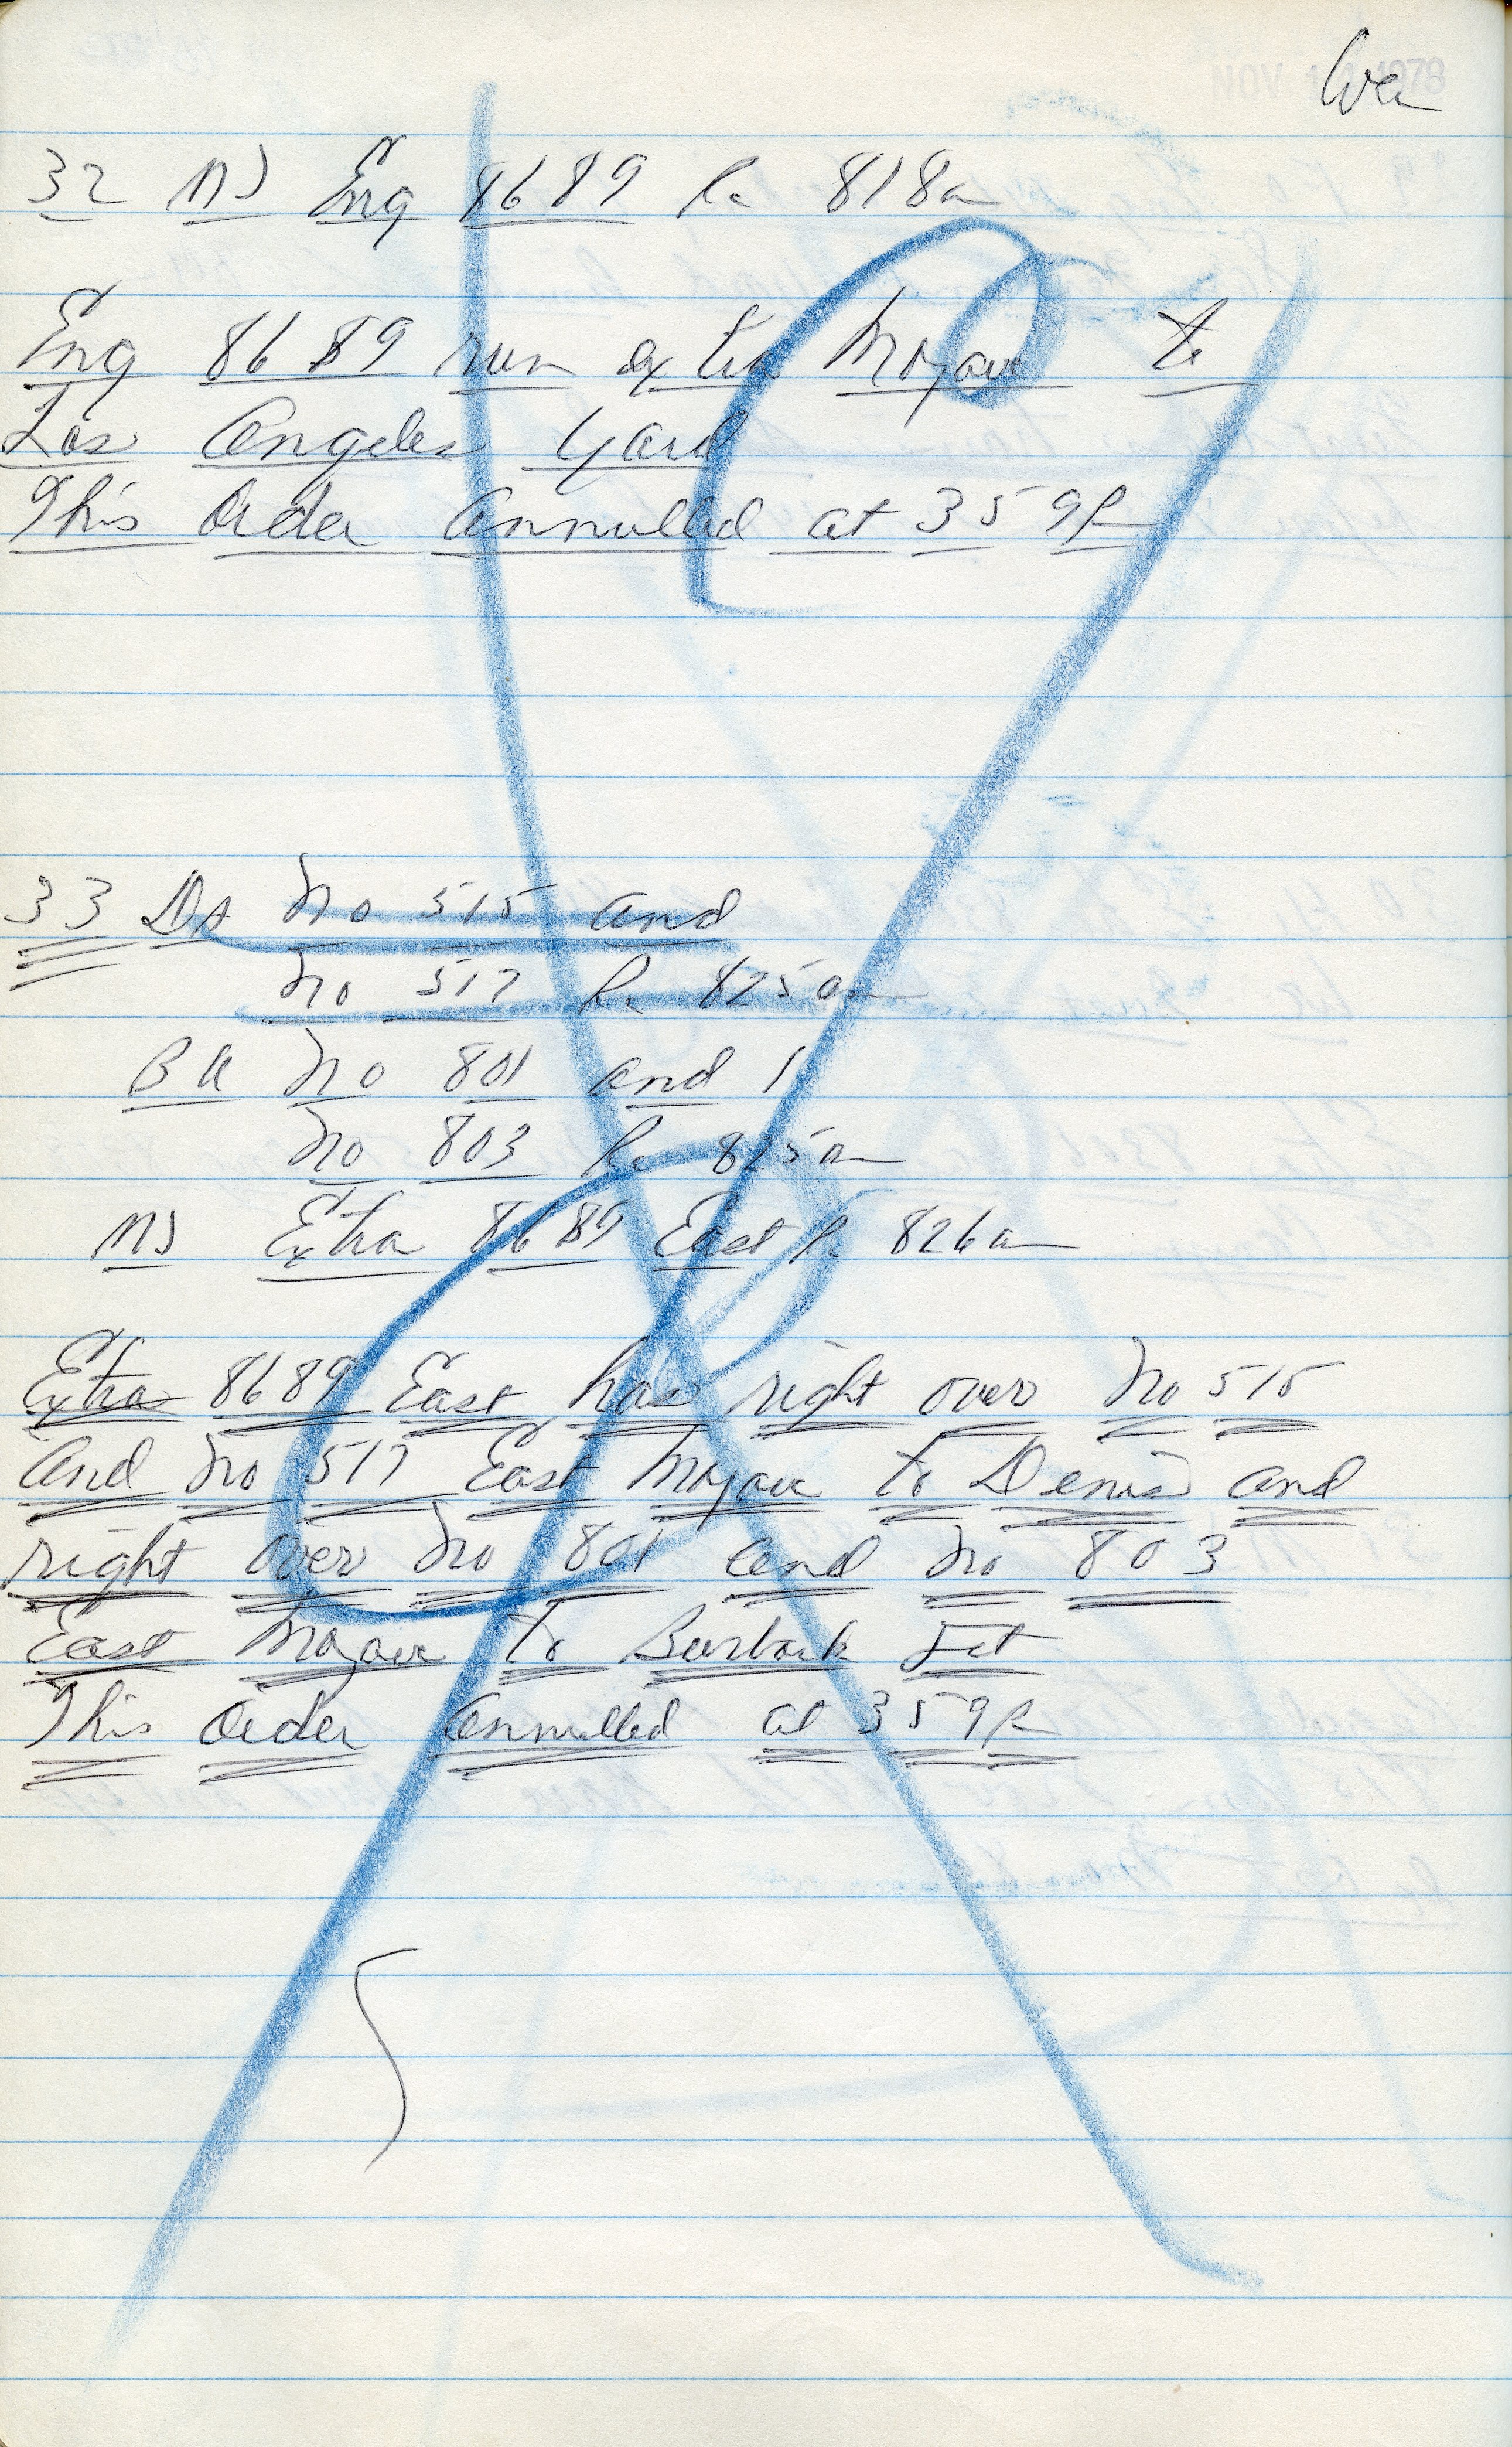 NOV 1 1978
32 MJ Eng 8689 Re 818a
Eng 8689 run extra Mojave to
Los Angeles Yard
This Order Annulled at 359P
33 DA No 515 and
No 517 Re 825a
BU No 801 and
No 803 Re 825a
MJ Extra 8689 East Re 826a
Extra 8689 East has right over No 515
and No 517 East Mojave to Denis and
right over No 801 and No 803
East Mojave to Burbank Jct
This Order Annulled at 359P